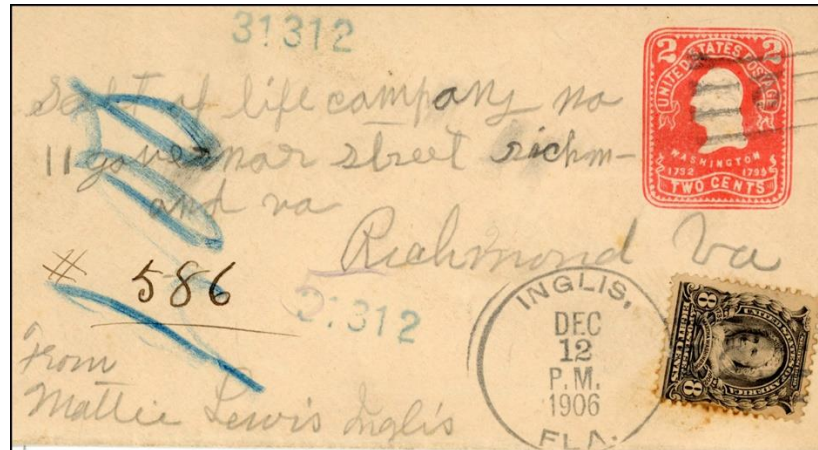 31312
2 UNITED STATES POSTAGE 2
WASHINGTON
1732 1799
TWO CENTS
of life company no
11 governor street richm-
ond va
Richmond Va
# 586
31312
INGLIS,
DEC
12
P.M.
1906
FLA.
8 8
UNITED STATES OF AMERICA
From
Mattie Lewis Inglis